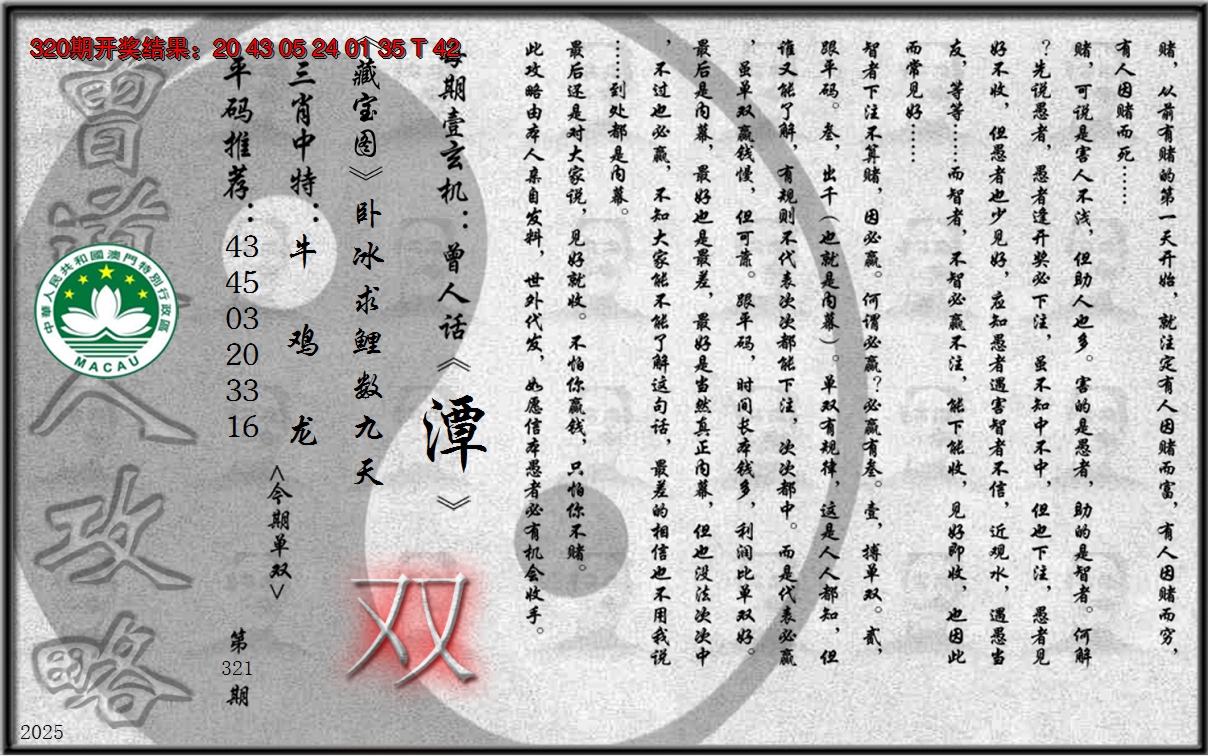 320期开奖结果：20 43 05 24 01 35 T 42
赌，从前有赌的第一天开始，就注定有人因赌而富，有人因赌而穷，
有人因赌而死……
赌，可说是害人不浅，但助人也多。害的是愚者，助的是智者。何解
？先说愚者，愚者逢开奖必下注，虽不知中不中，但也下注，愚者见
好不收，但愚者也少见好，应知愚者遇害智者不信，近观水，遇愚当
友，等等……而智者，不智必赢不注，能下能收，见好即收，也因此
而常见好……
智者下注不算赌，因必赢。何谓必赢？必赢有叁。壹，搏单双。贰，
跟平码。叁，出千（也就是内幕）。单双有规律，这是人人都知，但
谁又能了解，有规则不代表次次都能下注，次次都中。而是代表必赢
，虽单双赢钱慢，但可靠。跟平码，时间长本钱多，利润比单双好。
最后是内幕，最好也是最差，最好是当然真正内幕，但也没法次次中
，不过也必赢，不知大家能不能了解这句话，最差的相信也不用我说
……到处都是内幕。
最后还是对大家说，见好就收。不怕你赢钱，只怕你不赌。
此攻略由本人亲自发料，世外代发，如愿信本愚者必有机会收手。
每期壹玄机：曾人话《潭》
《藏宝图》卧冰求鲤数九天
双
三肖中特：牛 鸡 龙
<今期单双>
平码推荐：43 45 03 20 33 16
第321期
曾道人攻略
中華人民共和國澳門特別行政區
MACAU
2025